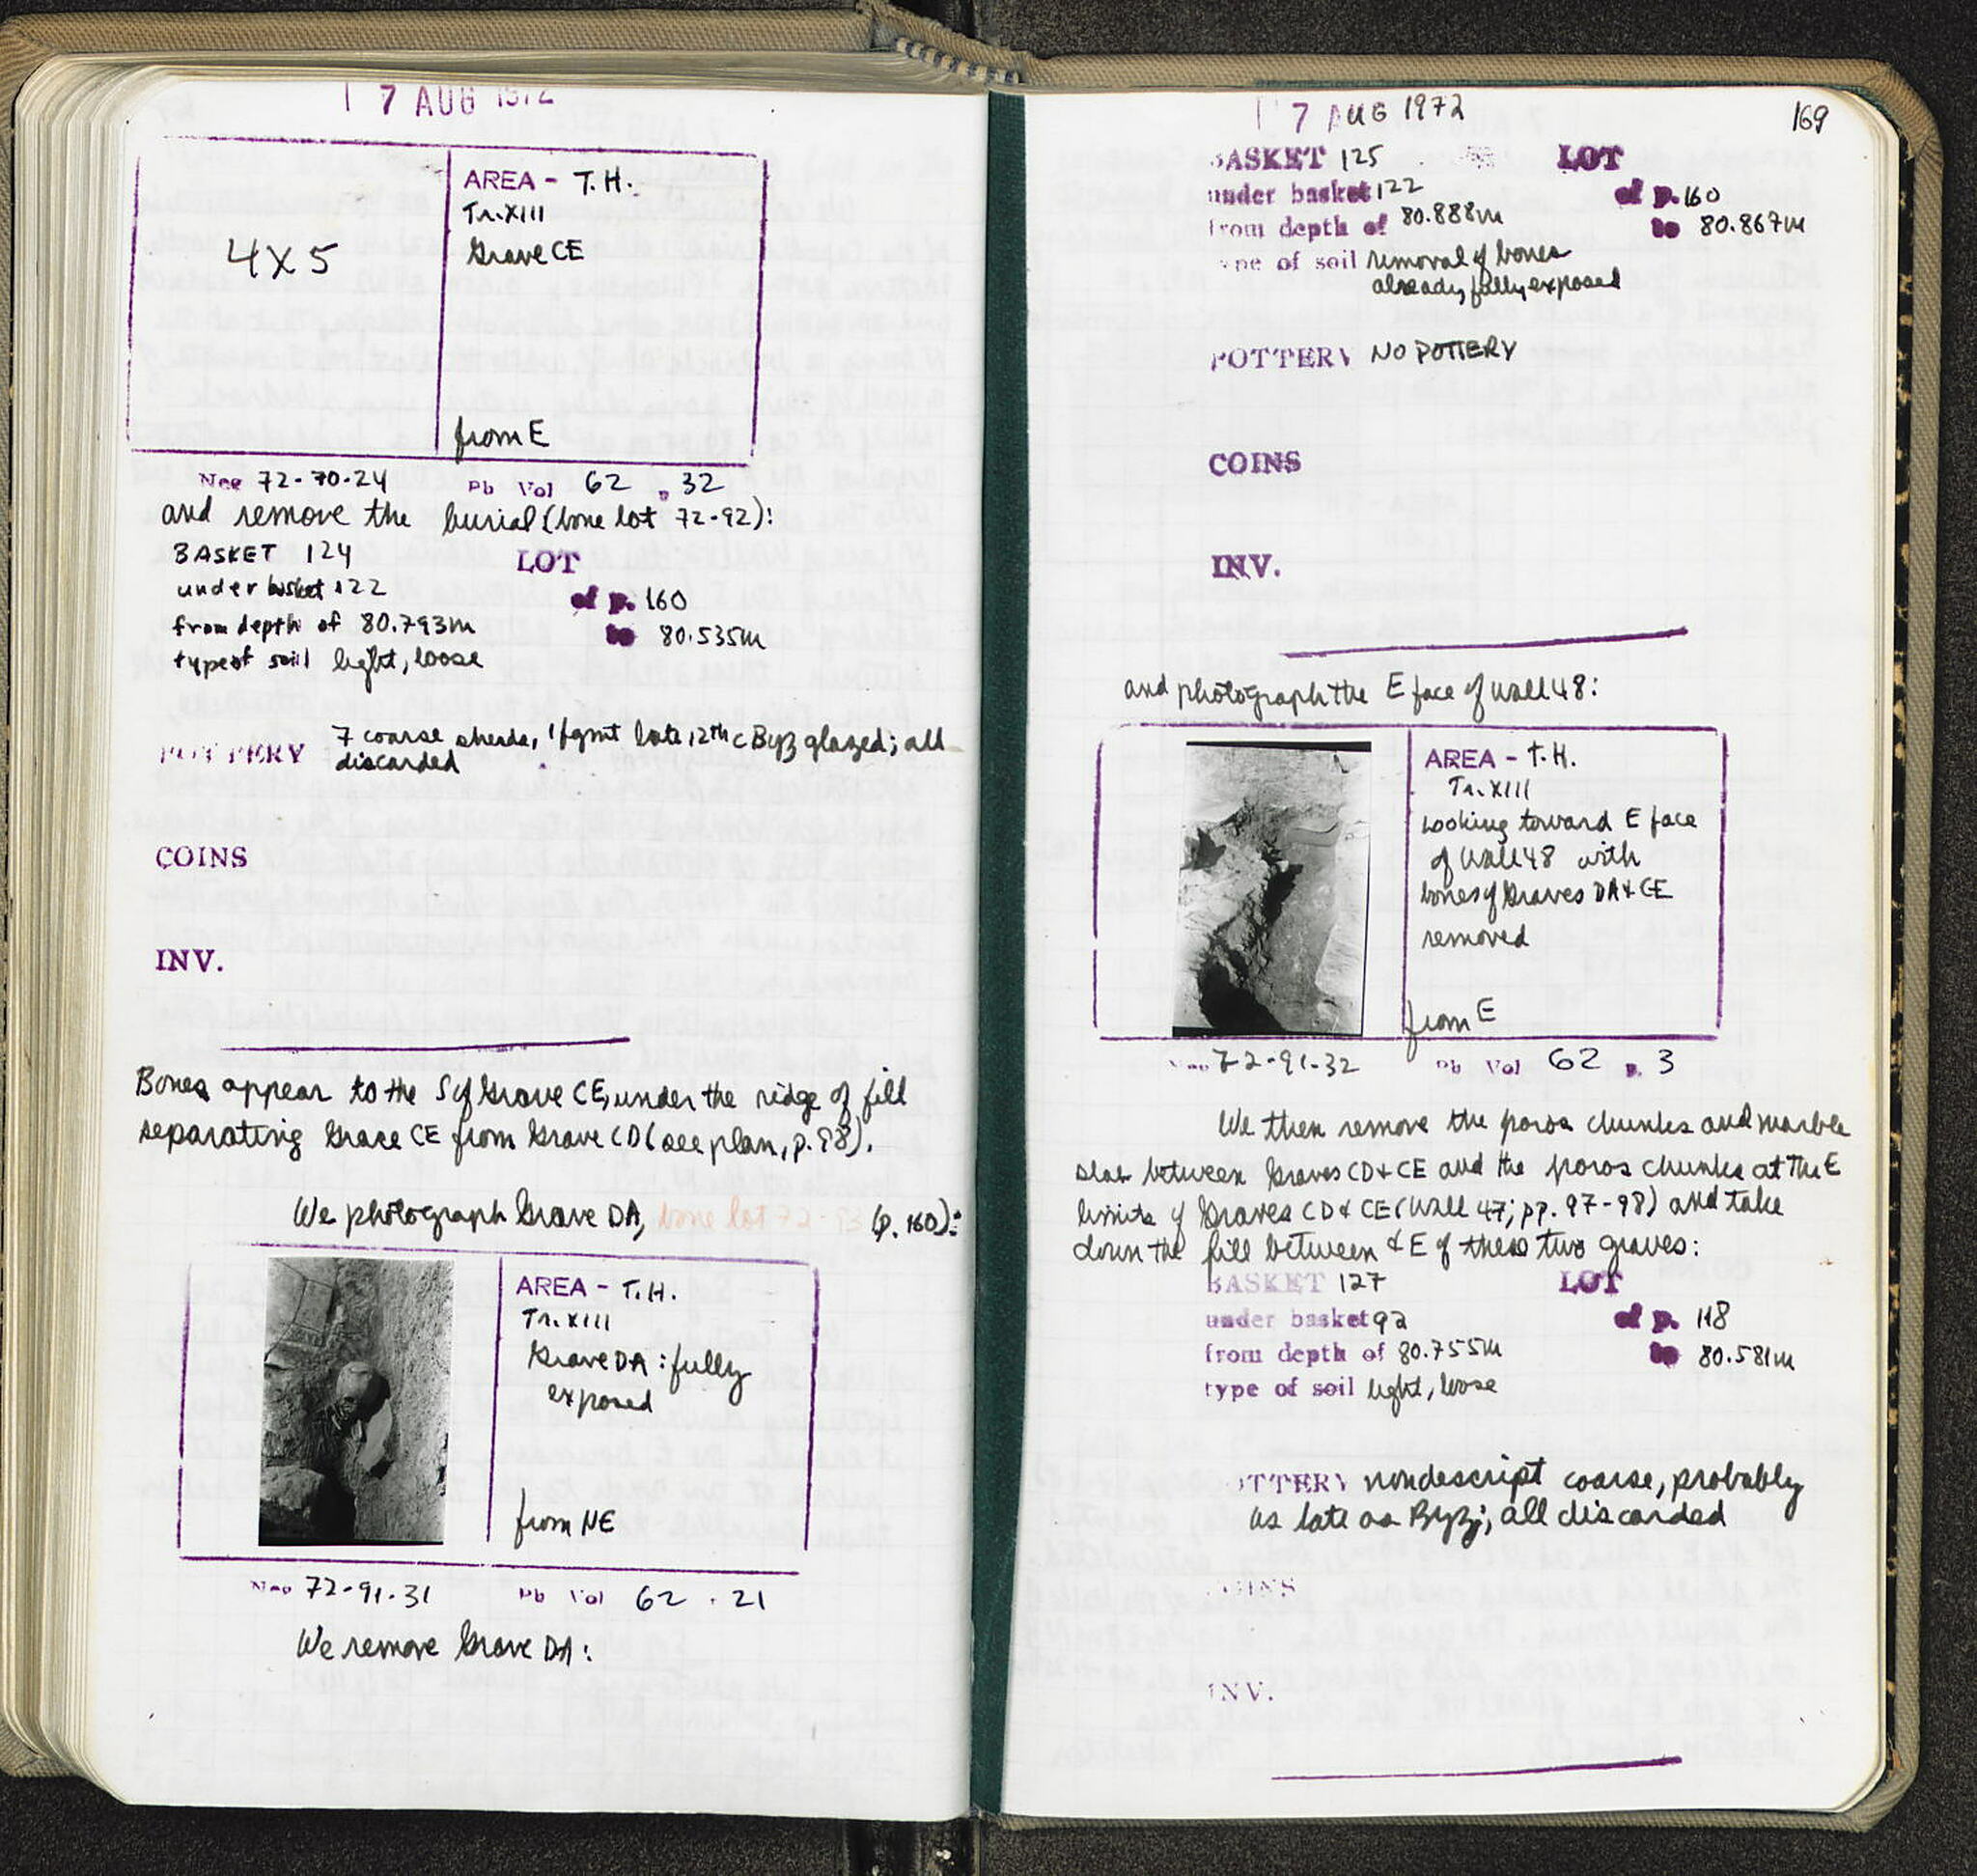 17 AUG 1972
4X5
AREA - T.H.
Tr. XIII
Grave CE
from E
Neg 72-70-24 Pb Vol 62 p. 32
and remove the burial (bone lot 72-92):
BASKET 124 LOT
under basket 122 of p. 160
from depth of 80.793m to 80.535m
type of soil light, loose
POTTERY 7 coarse sherds, 1 fgmt late 12th c Byz glazed; all
discarded
COINS
INV.
Bones appear to the S of Grave CE, under the ridge of fill
separating Grace CE from Grave CD (see plan, p. 98).
We photograph Grave DA, bone lot 72- (p. 160):
AREA - T.H.
Tr. XIII
Grave DA: fully
exposed
from NE
Neg 72-91-31 Pb Vol 62 . 21
We remove Grave DA:
17 AUG 1972 169
BASKET 125 LOT
under basket 122 of p. 160
from depth of 80.888m to 80.867m
type of soil removal of bones
already fully exposed
POTTERY NO POTTERY
COINS
INV.
and photograph the E face of wall 48:
AREA - T.H.
Tr. XIII
Looking toward E face
of wall 48 with
bones of Graves DA & CE
removed
from E
Neg 72-91-32 Pb Vol 62 p. 3
We then remove the poros chunks and marble
slab between Graves CD & CE and the poros chunks at the E
limits of Graves CD & CE (Wall 47; pp. 97-98) and take
down the fill between & E of these two graves:
BASKET 127 LOT
under basket 92 of p. 118
from depth of 80.755m to 80.581m
type of soil light, loose
POTTERY nondescript coarse, probably
as late as Byz; all discarded
COINS
INV.